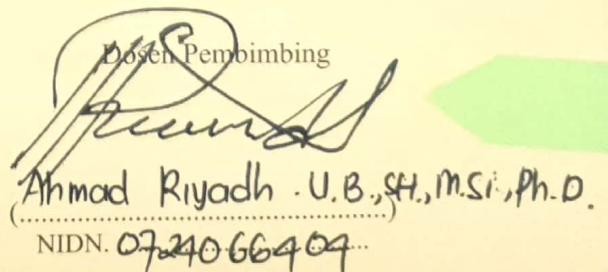 Dosen Pembimbing
Ahmad Riyadh . U.B., SH., M.Si., Ph.D.
(........................................)
NIDN. 0724066404